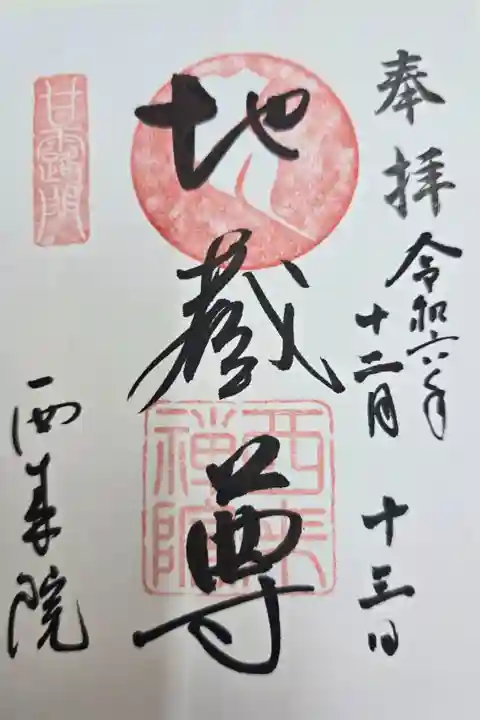 奉拝
令和六年
十二月 十三日
地蔵尊
西来院
甘露門
西来
禅院